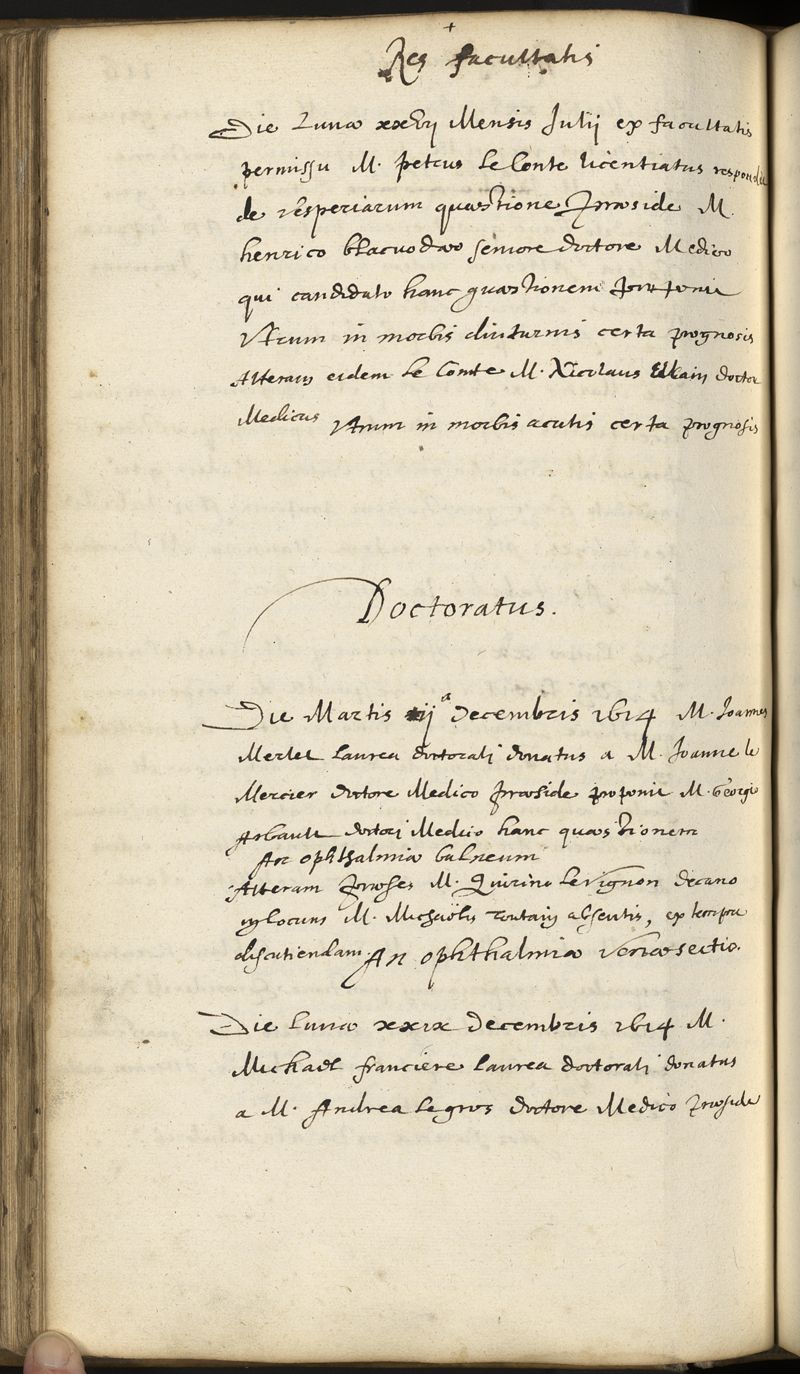 Res facultatis
Die Lunæ xxviij Mensis Julij ex facultatis
permissu M. petrus Le Conte licentiatus respondit
de vesperiarum quæstione Præside M.
henrico blacvodæo seniore doctore Medico
qui candidato hanc quæstionem proponit
Vtrum in morbis diuturnis certa prognosis
Alteram eidem Le Comte M. Nicolaus Ellain doctor
Medicus Vtrum in morbis acutis certa prognosis
Doctoratus.
Die Martis ij a decembris 1614 M. Joannes
Merlet laurea doctorali donatus a M. Joanne le
Mercier doctore Medico præside proponit M. Georgio
Arbault doctori Medico hanc quæstionem
An ophthalmiæ balneum
Alteram præses M. Quirino Le Vignon decano
in locum M. Michaëlis absentis, ex tempore
discutiendam. An ophthalmiæ venæsectio.
Die Lunæ xxix decembris 1614 M.
Michael franciere laurea doctorali donatus
a M. Andrea Legros doctore Medico præside